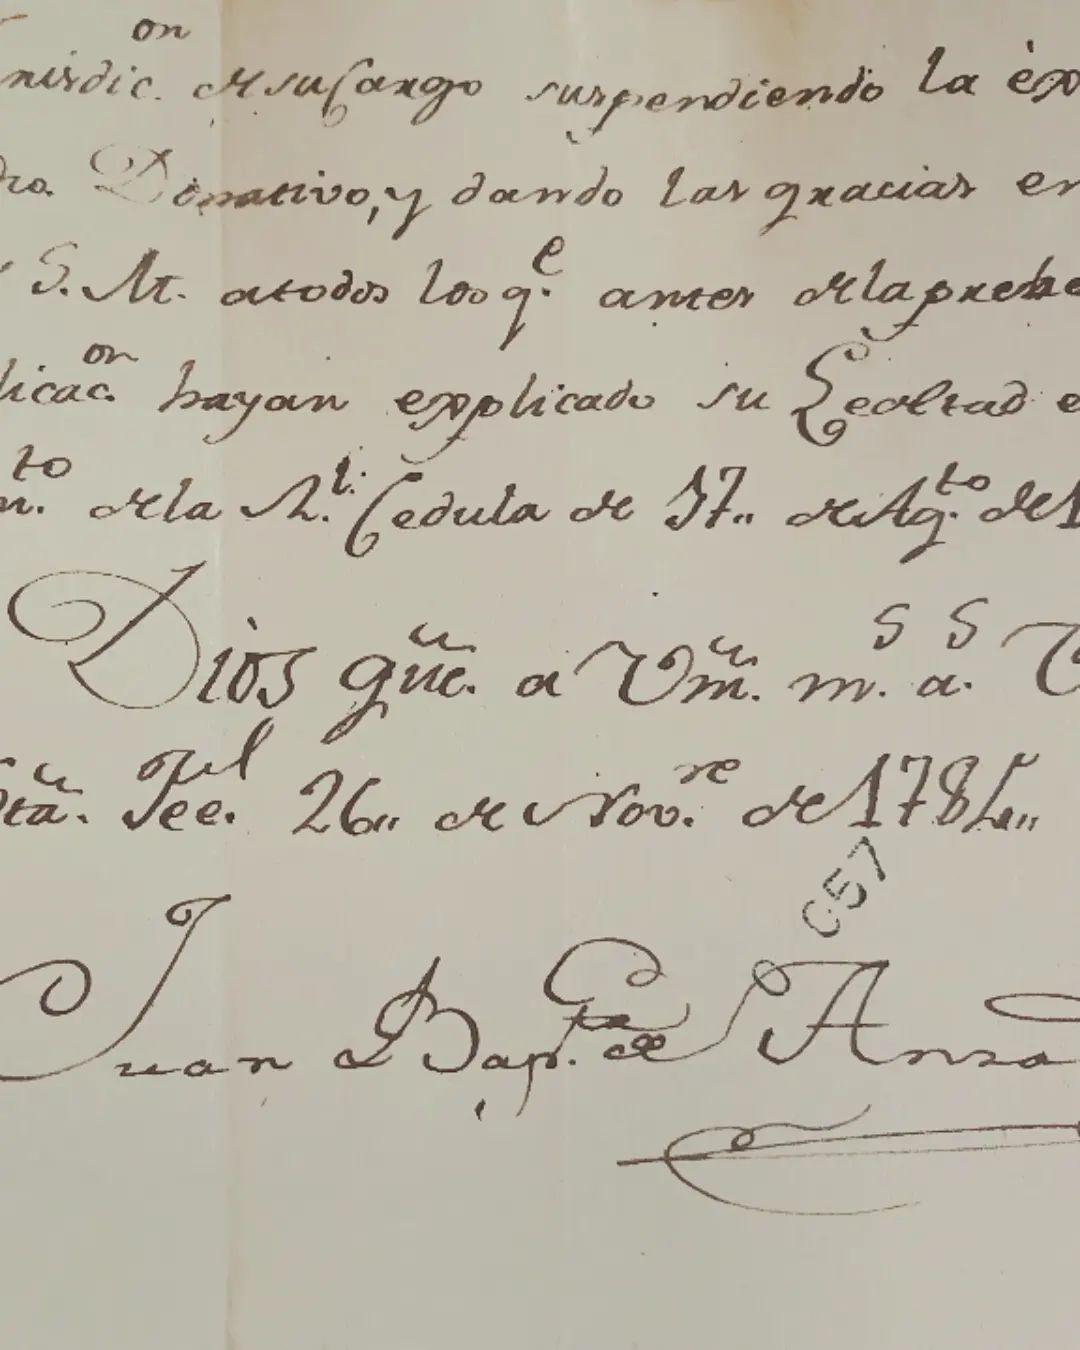 nisdic.on de su Cargo suspendiendo la èx
dro. Donativo, y dando las gracias en
S. M. a todos los q.e antes de la prebe
licac.on hayan explicado su Lealtad e
m.to de la R.l Cedula de 17,, de Ag.to de 1
Dios gũe. a Vm̃. m.s a.s V
Sta. Feé. 26,, de Nov.re de 1784,,
C57
Juan Bap.ta de Anza